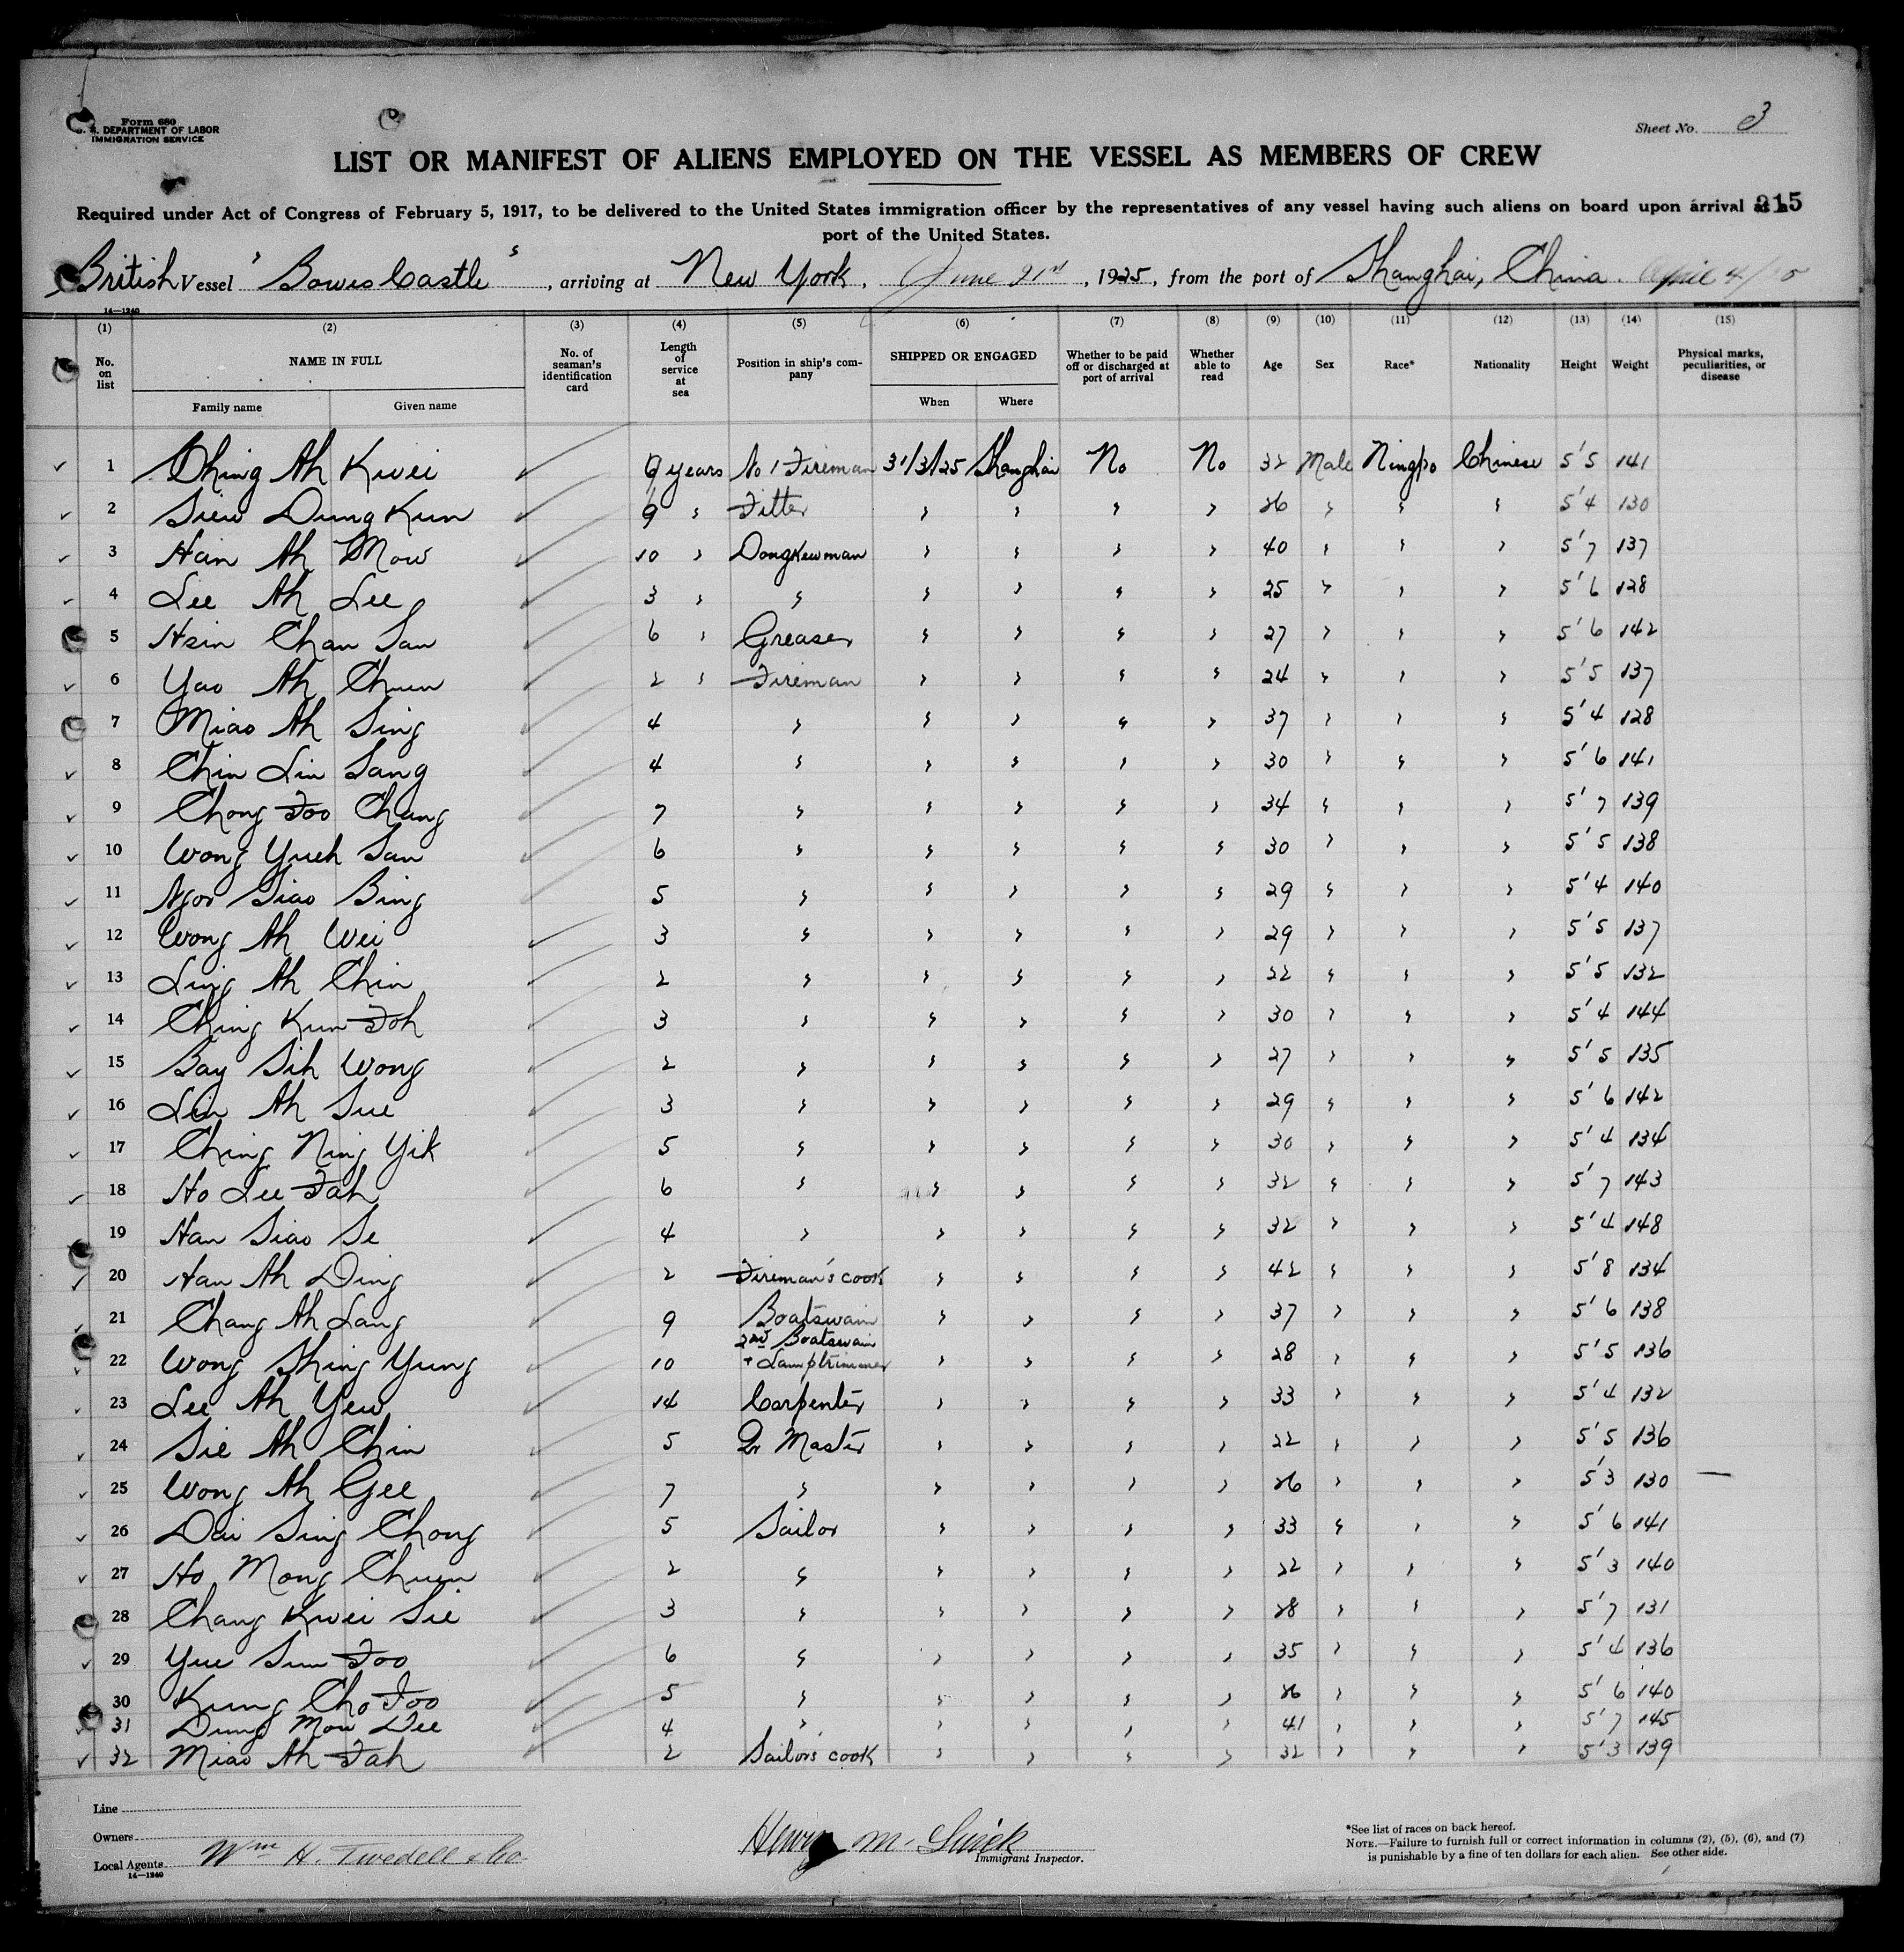 Form 680
U. S. DEPARTMENT OF LABOR
IMMIGRATION SERVICE
Sheet No. 3
LIST OR MANIFEST OF ALIENS EMPLOYED ON THE VESSEL AS MEMBERS OF CREW
Required under Act of Congress of February 5, 1917, to be delivered to the United States immigration officer by the representatives of any vessel having such aliens on board upon arrival at a
215
port of the United States.
British Vessel "Bowes Castle", arriving at New York, June 21st, 1925, from the port of Shanghai, China. April 4/
14—1240
(1) (2) (3) (4) (5) (6) (7) (8) (9) (10) (11) (12) (13) (14) (15)
No. on list NAME IN FULL No. of seaman's identification card Length of service at sea Position in ship's company SHIPPED OR ENGAGED Whether to be paid off or discharged at port of arrival Whether able to read Age Sex Race* Nationality Height Weight Physical marks, peculiarities, or disease
Family name Given name When Where
1 Ching Ah Kwei 9 years No 1 Fireman 31/3/25 Shanghai No No 32 Male Ningpo Chinese 5'5 141
2 Siew Dung Kun 9 " Fitter " " " " 26 " " " 5'4 130
3 Han Ah Mow 10 " Donkewman " " " " 40 " " " 5'7 137
4 Lee Ah Lee 3 " " " " " " 25 " " " 5'6 128
5 Hsin Chan San 6 " Greaser " " " " 27 " " " 5'6 142
6 Yao Ah Chun 2 " Fireman " " " " 24 " " " 5'5 137
7 Miao Ah Sing 4 " " " " " 37 " " " 5'4 128
8 Chin Lin Sang 4 " " " " " 30 " " " 5'6 141
9 Chong Foo Chang 7 " " " " " 34 " " " 5'7 139
10 Wong Yueh San 6 " " " " " 30 " " " 5'5 138
11 Ngor Siao Bing 5 " " " " " 29 " " " 5'4 140
12 Wong Ah Wei 3 " " " " " 29 " " " 5'5 137
13 Ling Ah Chin 2 " " " " " 22 " " " 5'5 132
14 Ching Kun Foh 3 " " " " " 30 " " " 5'4 144
15 Bay Sih Wong 2 " " " " " 27 " " " 5'5 135
16 Lin Ah Sue 3 " " " " " 29 " " " 5'6 142
17 Ching Ning Yik 5 " " " " " 30 " " " 5'4 134
18 Ho Lee Fah 6 " " " " " 32 " " " 5'7 143
19 Han Siao Se 4 " " " " " 32 " " " 5'4 148
20 Han Ah Ding 2 Fireman's cook " " " " 42 " " " 5'8 134
21 Chang Ah Lang 9 Boatswain " " " " 37 " " " 5'6 138
22 Wong Shing Yung 10 2nd Boatswain + Lamptrimmer " " " " 28 " " " 5'5 136
23 Lee Ah Yew 14 Carpenter " " " " 33 " " " 5'4 132
24 Sie Ah Chin 5 Qr Master " " " " 22 " " " 5'5 136
25 Wong Ah Gee 7 " " " " " 26 " " " 5'3 130 —
26 Dai Sing Chong 5 Sailor " " " " 33 " " " 5'6 141
27 Ho Mong Chun 2 " " " " " 22 " " " 5'3 140
28 Chang Kwei Sie 3 " " " " " 28 " " " 5'7 131
29 Yue Sun Foo 6 " " " " " 35 " " " 5'4 136
30 Kung Cho Foo 5 " " " " " 26 " " " 5'6 140
31 Dung Mow Dee 4 " " " " " 41 " " " 5'7 145
32 Miao Ah Fah 2 Sailors cook " " " " 32 " " " 5'3 139
Line
Owners
Local Agents Wm H. Twedell & Co
14—1240
Henry M.
Immigrant Inspector.
*See list of races on back hereof.
NOTE.—Failure to furnish full or correct information in columns (2), (5), (6), and (7)
is punishable by a fine of ten dollars for each alien. See other side.